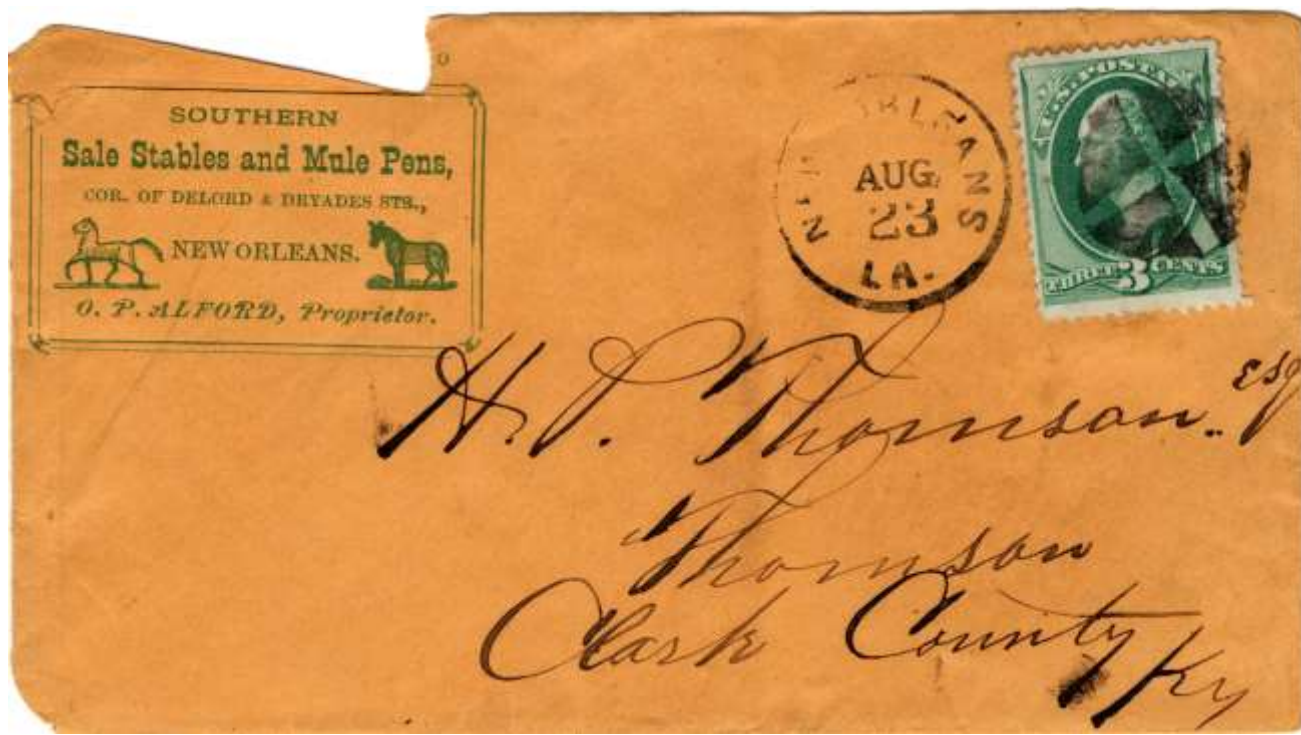 SOUTHERN
Sale Stables and Mule Pens,
COR. OF DELORD & DRYADES STS.,
NEW ORLEANS.
O. P. ALFORD, Proprietor.
NEW ORLEANS
AUG
23
LA.
U.S. POSTAGE
THREE 3 CENTS
H. P. Thomson.. Esq
Thomson
Clark County
Ky